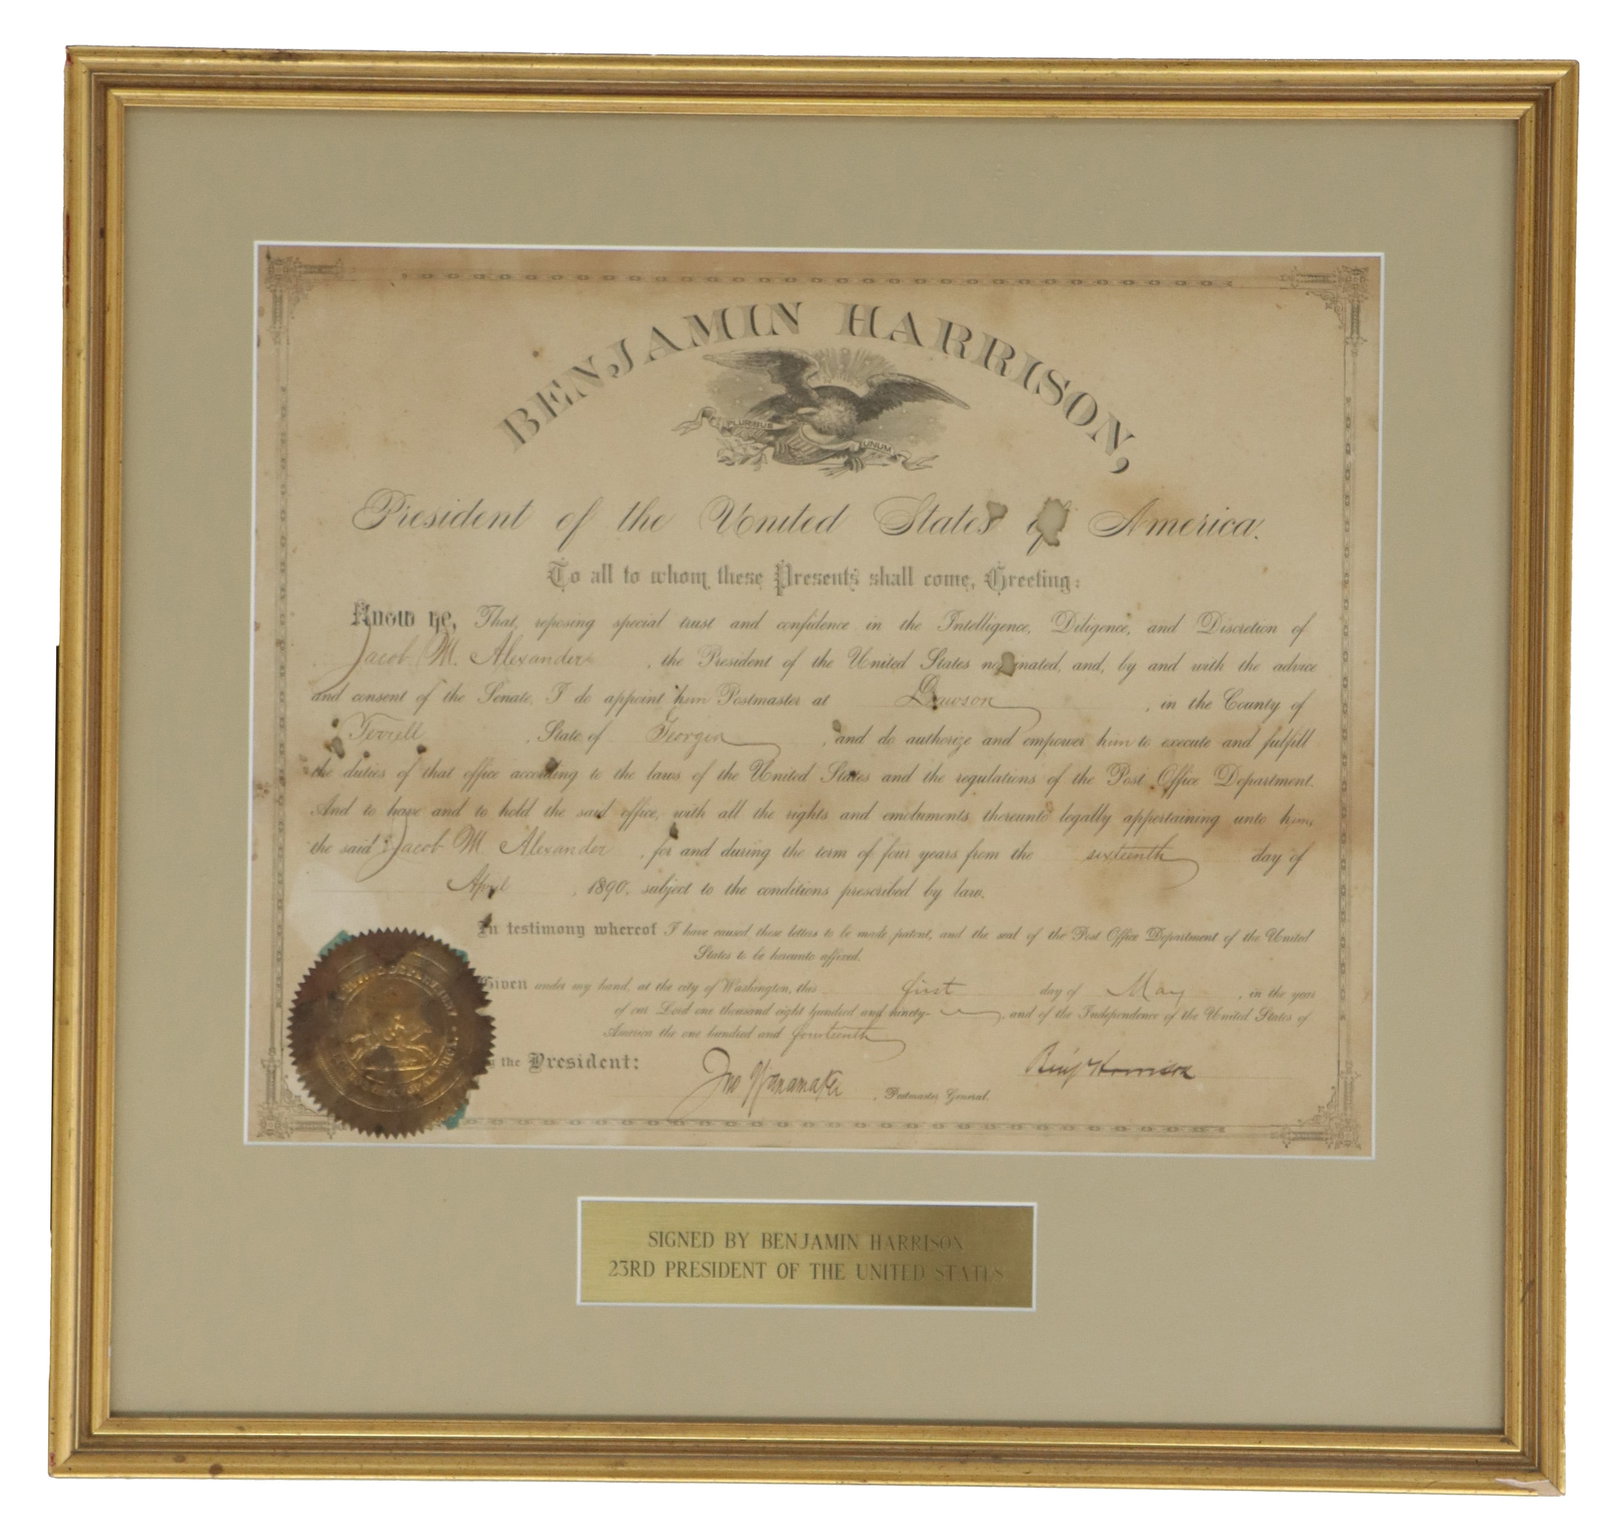 BENJAMIN HARRISON,
PLURIBUS UNUM
President of the United States of America.
To all to whom these Presents shall come, Greeting:
Know ye, That, reposing special trust and confidence in the Intelligence, Diligence, and Discretion of
Jacob M. Alexander, the President of the United States nominated, and, by and with the advice
and consent of the Senate, I do appoint him Postmaster at Dawson, in the County of
Terrell, State of Georgia, and do authorize and empower him to execute and fulfill
the duties of that office according to the laws of the United States and the regulations of the Post Office Department.
And to have and to hold the said office, with all the rights and emoluments thereunto legally appertaining unto him,
the said Jacob M. Alexander, for and during the term of four years from the sixteenth day of
April, 1890, subject to the conditions prescribed by law.
In testimony whereof I have caused these letters to be made patent, and the seal of the Post Office Department of the United
States to be hereunto affixed.
Given under my hand, at the city of Washington, this first day of May, in the year
of our Lord one thousand eight hundred and ninety-, and of the Independence of the United States of
America the one hundred and fourteenth
the President:
Jno Wanamaker, Postmaster General.
Benj Harrison
SIGNED BY BENJAMIN HARRISON
23RD PRESIDENT OF THE UNITED STATES